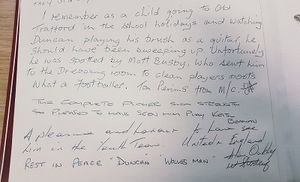 I remember as a child going to Old
Trafford in the school holidays and watching
Duncan playing his brush as a guitar he
should have been sweeping up. Unfortunately
he was spotted by Matt Busby, who sent him
to the Dressing room to clean players boots
What a footballer. Tom Perrins from M/C.
THE COMPLETE PLAYER SUCH STRENGTH
SO PLEASED TO HAVE SEEN HIM PLAY
A pleasure and honour to have see
him in the Youth Team. United & England
REST IN PEACE "DUNCAN" "WOLVES MAN"